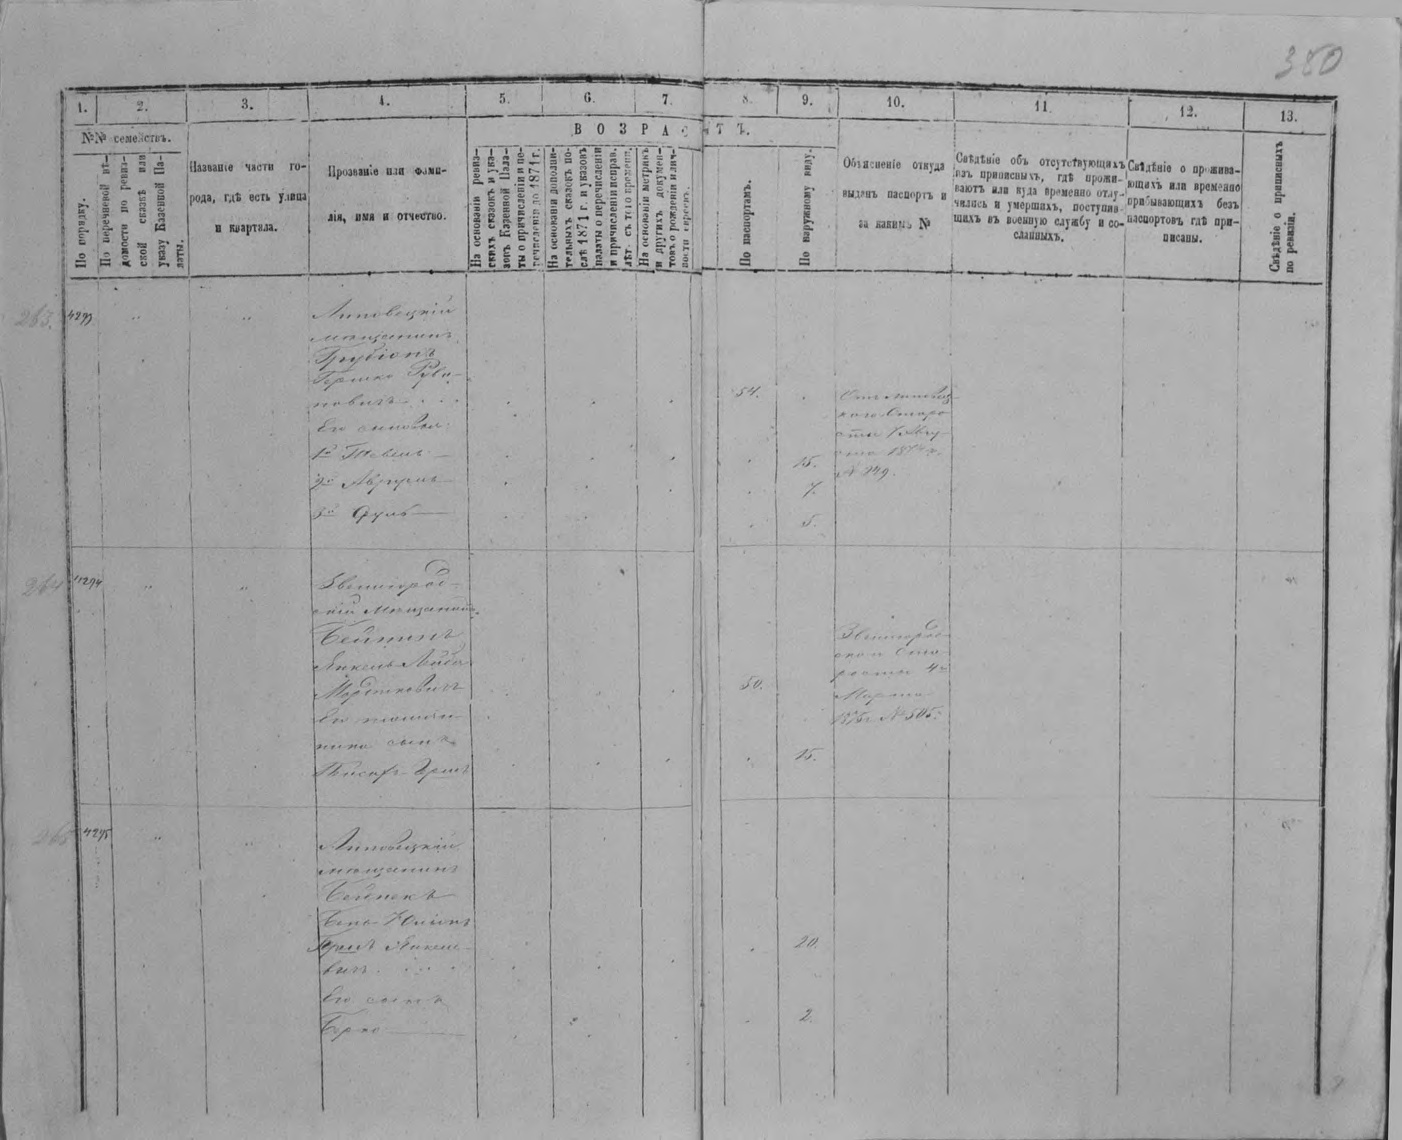 380
1.
2.
3.
4.
5.
6.
7.
8.
9.
10.
11.
12.
13.
№№ семействъ.
По порядку.
По перечневой вѣ-
домости по ревиз-
ской сказкѣ или
указу Казенной Па-
латы.
Названіе части го-
рода, гдѣ есть улица
и кварталa.
Прозваніе или фами-
лія, имя и отчество.
ВОЗРАСТЪ.
На основаніи ревиз-
скихъ сказокъ и ука-
зовъ Казенной Пала-
ты о причисленіи и пе-
речисленіи до 1871 г.
На основаніи дополни-
тельныхъ сказокъ по-
слѣ 1871 г. и указовъ
палаты о перечисленіи
и причисленіи исправ.
лѣт. съ того времени.
На основаніи метрикъ
и другихъ докумен-
товъ о рожденіи и лич-
ности евреевъ.
По паспортамъ.
По наружному виду.
Объясненіе откуда
выданъ паспортъ и
за какимъ №
Свѣдѣніе объ отсутствующихъ
изъ приписныхъ, гдѣ прожи-
ваютъ или куда временно отлу-
чились и умершихъ, поступив-
шихъ въ военную службу и со-
сланныхъ.
Свѣдѣніе о прожива-
ющихъ или временно
прибывающихъ безъ
паспортовъ гдѣ при-
писаны.
Свѣдѣніе о приписныхъ
по ревизіи.
263.
4293
Липовецкій
мѣщанинъ
Гершко Руви-
новичъ
54.
Его сыновья:
1й
15.
2й Аврумъ
7.
3й
5.
Отъ Липовец-
каго Старо-
сты 7 Авгу-
ста 1874 г.
№ 949.
264
4294
Звенигород-
скій Мѣщанинъ
Бейтинъ
Янкель Лейба
Мордковичъ
50.
Его
сынъ
15.
Звенигород-
ской Ста-
росты 4го
Марта
№ 505.
265
4295
Липовецкій
мѣщанинъ
20.
Его сынъ
Берко
2.